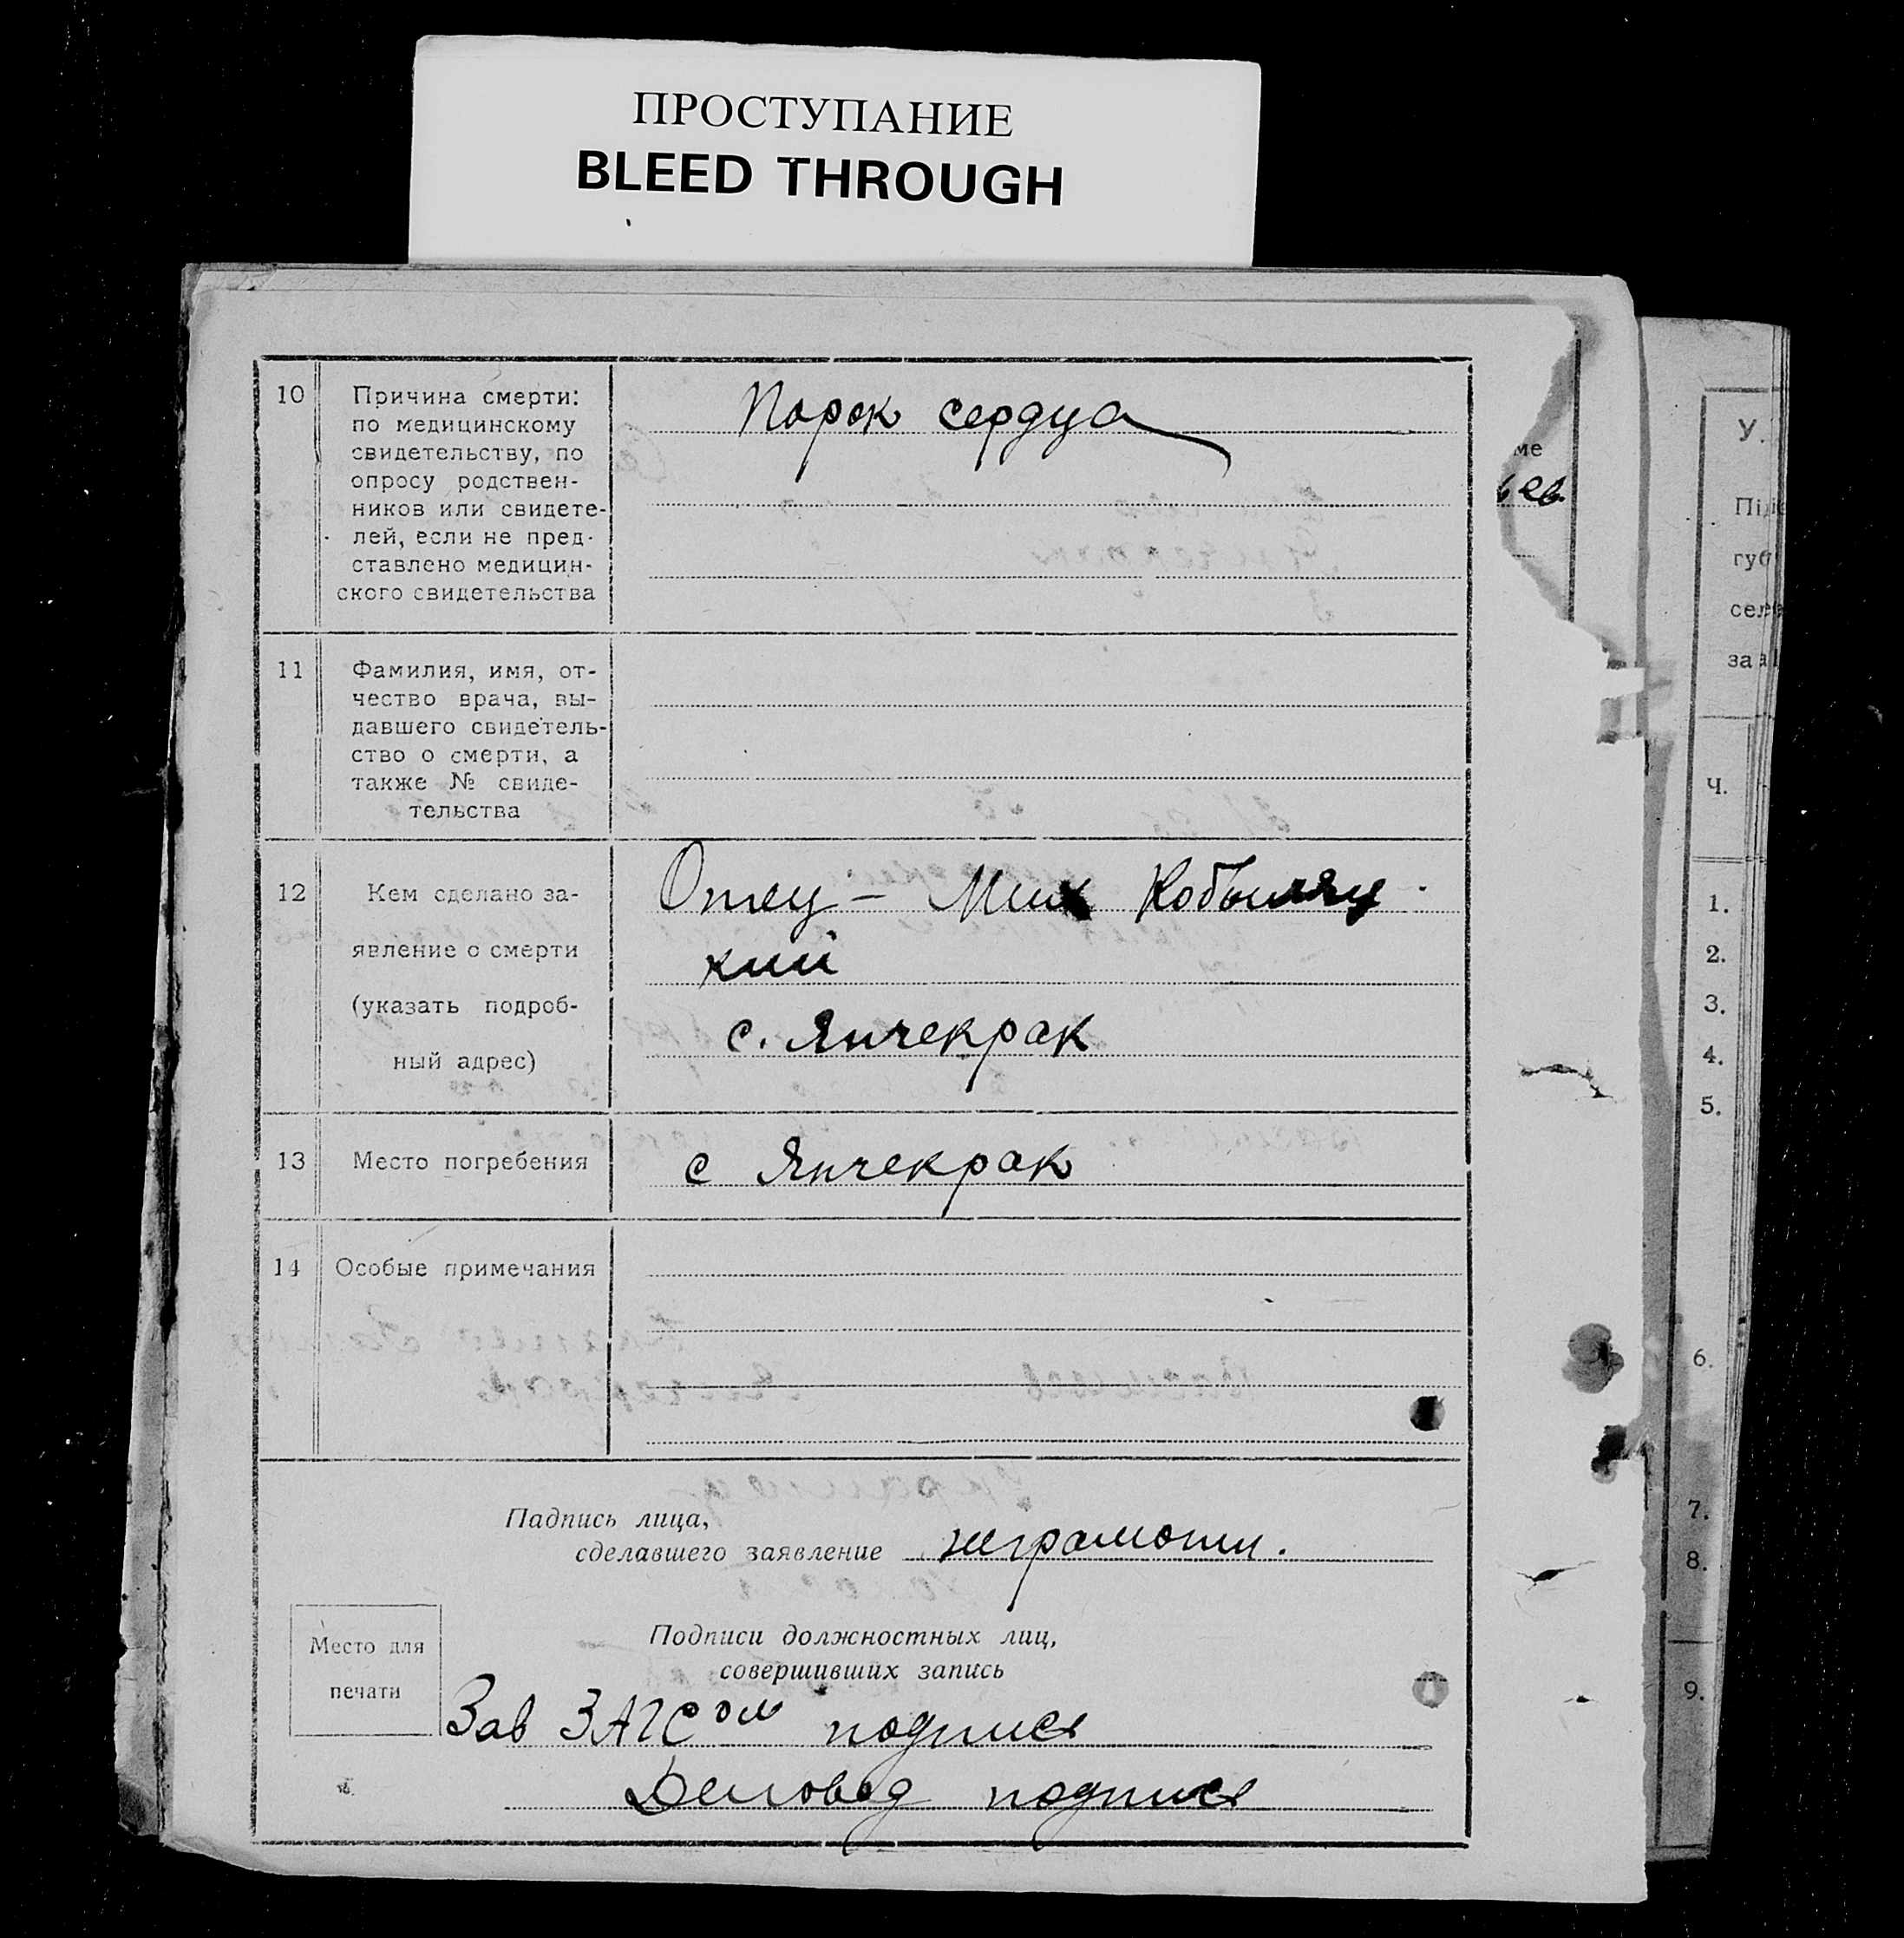 ПРОСТУПАНИЕ
BLEED THROUGH
10
Причина смерти:
по медицинскому
свидетельству, по
опросу родствен-
ников или свидете-
лей, если не пред-
ставлено медицин-
ского свидетельства
Порок сердца
11
Фамилия, имя, от-
чество врача, вы-
давшего свидетель-
ство о смерти, а
также № свиде-
тельства
12
Кем сделано за-
явление о смерти
(указать подроб-
ный адрес)
Отец – Мих Кобыляц
кий
с. Янчекрак
13
Место погребения
с Янчекрак
14
Особые примечания
Падпись лица,
сделавшего заявление неграмотн.
Место для
печати
Подписи должностных лиц,
совершивших запись
Зав ЗАГСом подпись
Деловод подпись
ме
У.
Ч.
1.
2.
3.
4.
5.
6.
7.
8.
9.